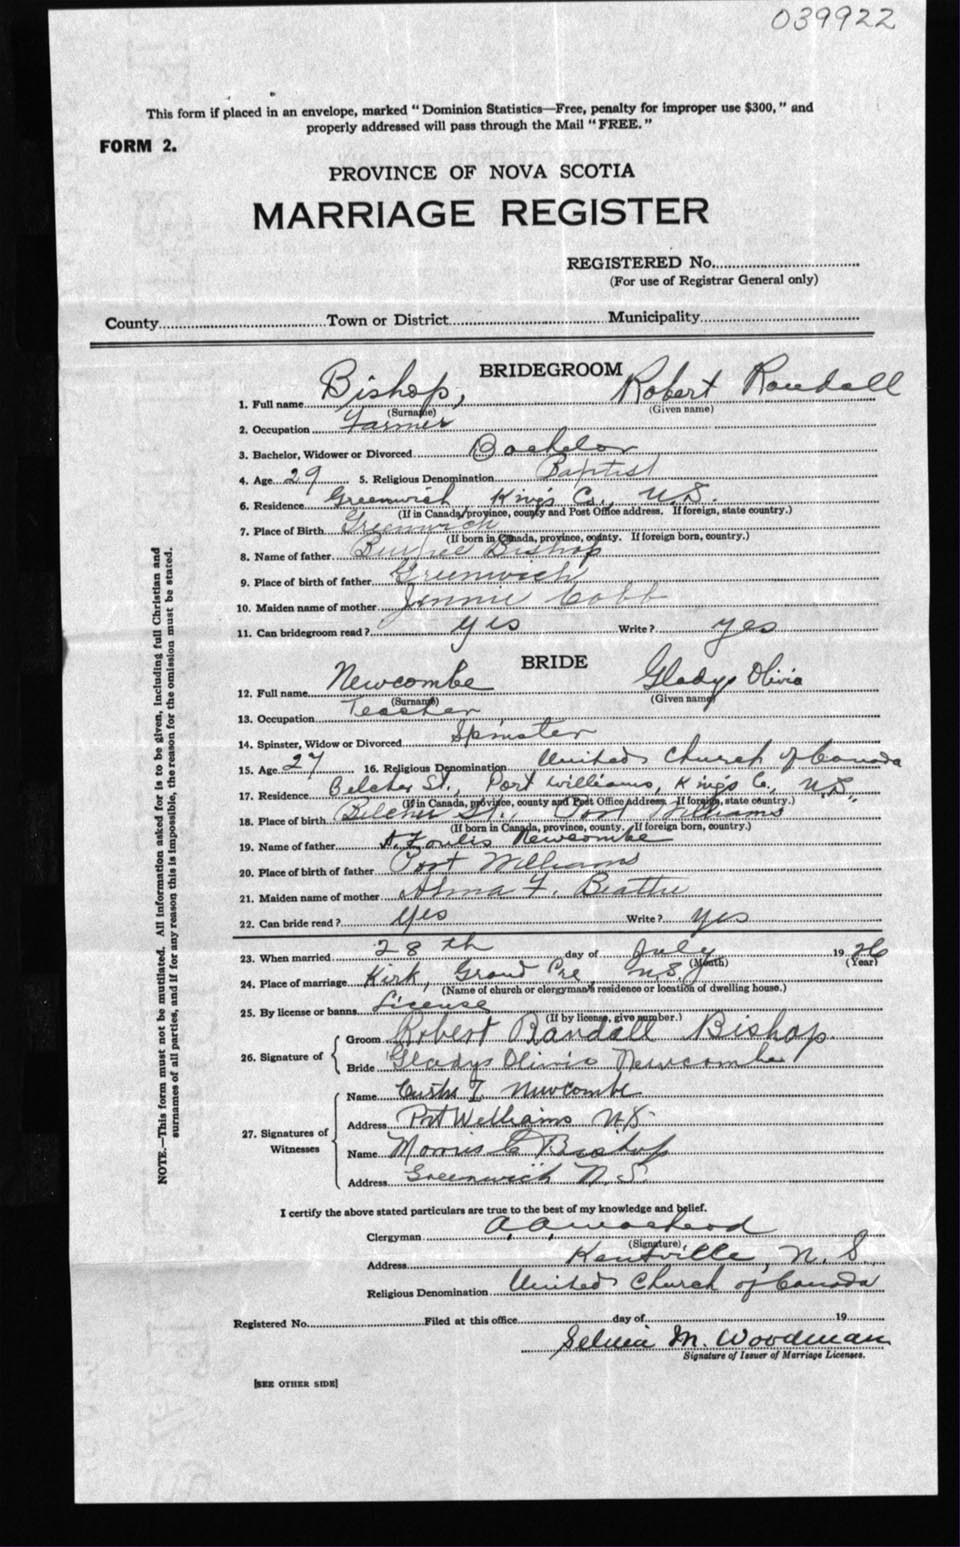 039922
This form if placed in an envelope, marked "Dominion Statistics—Free, penalty for improper use $300," and
properly addressed will pass through the Mail "FREE."
FORM 2.
PROVINCE OF NOVA SCOTIA
MARRIAGE REGISTER
REGISTERED No.
(For use of Registrar General only)
County Town or District Municipality
BRIDEGROOM
1. Full name Bishop, Robert Randall
(Surname) (Given name)
2. Occupation Farmer
3. Bachelor, Widower or Divorced Bachelor
4. Age 29 5. Religious Denomination Baptist
6. Residence Greenwich King's Co., N.S.
(If in Canada, province, county and Post Office address. If foreign, state country.)
7. Place of Birth Greenwich
(If born in Canada, province, county. If foreign born, country.)
8. Name of father Bishop
9. Place of birth of father Greenwich
10. Maiden name of mother Jennie Cobb
11. Can bridegroom read? yes Write? yes
BRIDE
12. Full name Newcombe Gladys Olivia
(Surname) (Given name)
13. Occupation Teacher
14. Spinster, Widow or Divorced Spinster
15. Age 27 16. Religious Denomination United Church of Canada
17. Residence Belcher St., Port Williams, King's Co., N.S.,
(If in Canada, province, county and Post Office Address. If foreign, state country.)
18. Place of birth Belcher St., Port Williams
(If born in Canada, province, county. If foreign born, country.)
19. Name of father Newcombe
20. Place of birth of father Port Williams
21. Maiden name of mother Alma F. Beattie
22. Can bride read? Yes Write? yes
23. When married 28th day of July 19 26
(Month) (Year)
24. Place of marriage Kirk, Grand Pre N.S.
(Name of church or clergyman's residence or location of dwelling house.)
25. By license or banns License
(If by license, give number.)
26. Signature of
Groom Robert Randall Bishop
Bride Gladys Olivia Newcombe
27. Signatures of Witnesses
Name Newcombe
Address Port Williams N.S.
Name Morris C Bishop
Address Greenwich N.S.
I certify the above stated particulars are true to the best of my knowledge and belief.
Clergyman A. A. MacLeod
(Signature)
Address Kentville, N.S.,
Religious Denomination United Church of Canada
Registered No. Filed at this office day of 19
M. Woodman
Signature of Issuer of Marriage Licenses.
[SEE OTHER SIDE]
NOTE.—This form must not be mutilated. All information asked for is to be given, including full Christian and
surnames of all parties, and if for any reason this is impossible, the reason for the omission must be stated.